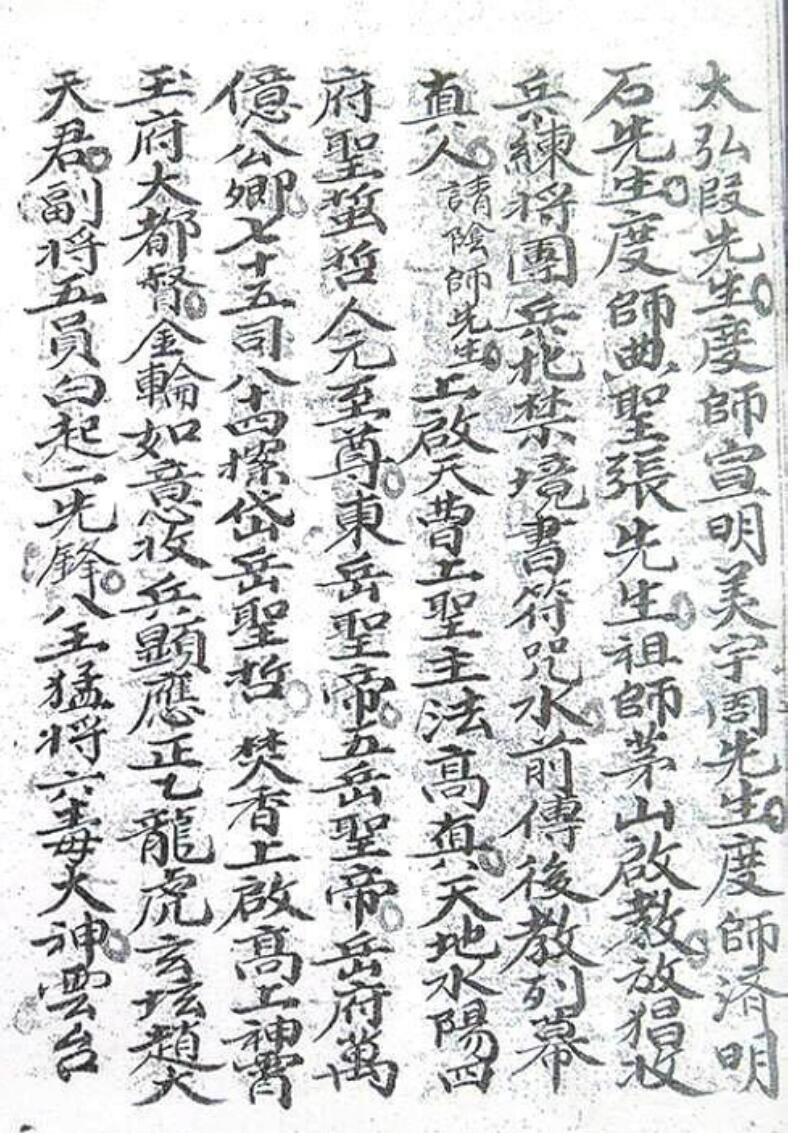 太弘叚先生度師宣明美宇周先生度師済明
石先生度師典聖張先生祖師茅山啟教放猖收
兵練將團兵扎禁境書符咒水前傳後教列幕
真人請陰師先生上啟天曹上聖主法高真天地水陽四
府聖蓝哲人元至尊東岳聖帝五岳聖帝岳府萬
億公卿七十五司八十四攃岱岳聖哲焚香上啟高上神霄
玉府大都督金輪如意收兵顯應正乙龍虎玄坛趙大
天君副将五員白起二先鋒八王猛将六毒大神雲台